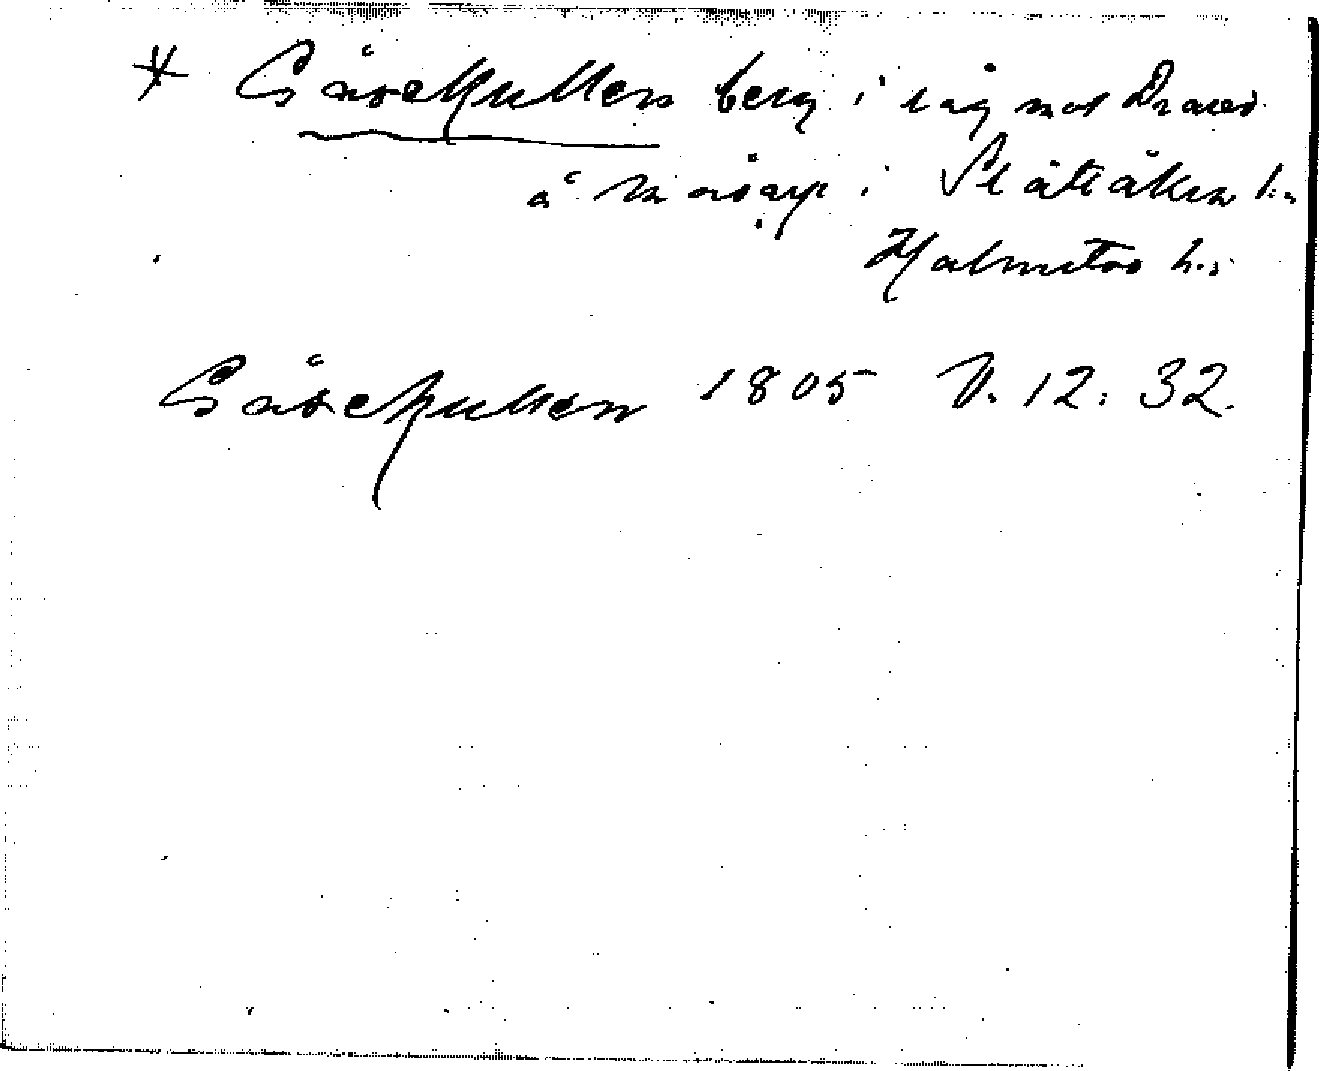 * Gåsekullen berg i väg mot Draed
å Mosarp i Slättåkra sn
Halmstad h.
Gåsekullen 1805 V. 12: 32.